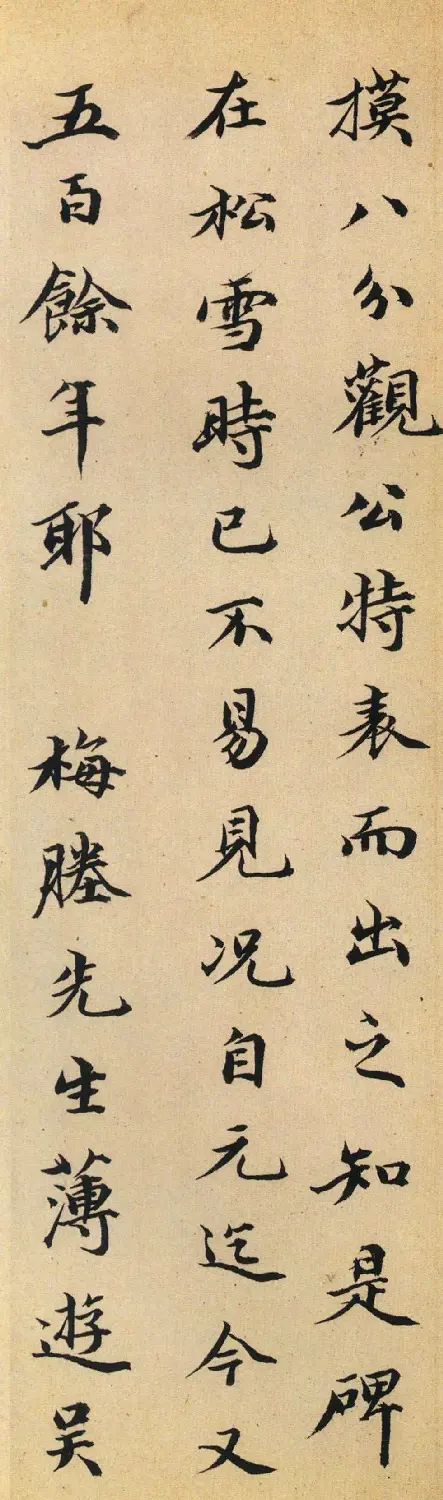 摸八分觀公特表而出之知是碑
在松雪時已不易見况自元迄今又
五百餘年耶 梅塍先生薄遊吴